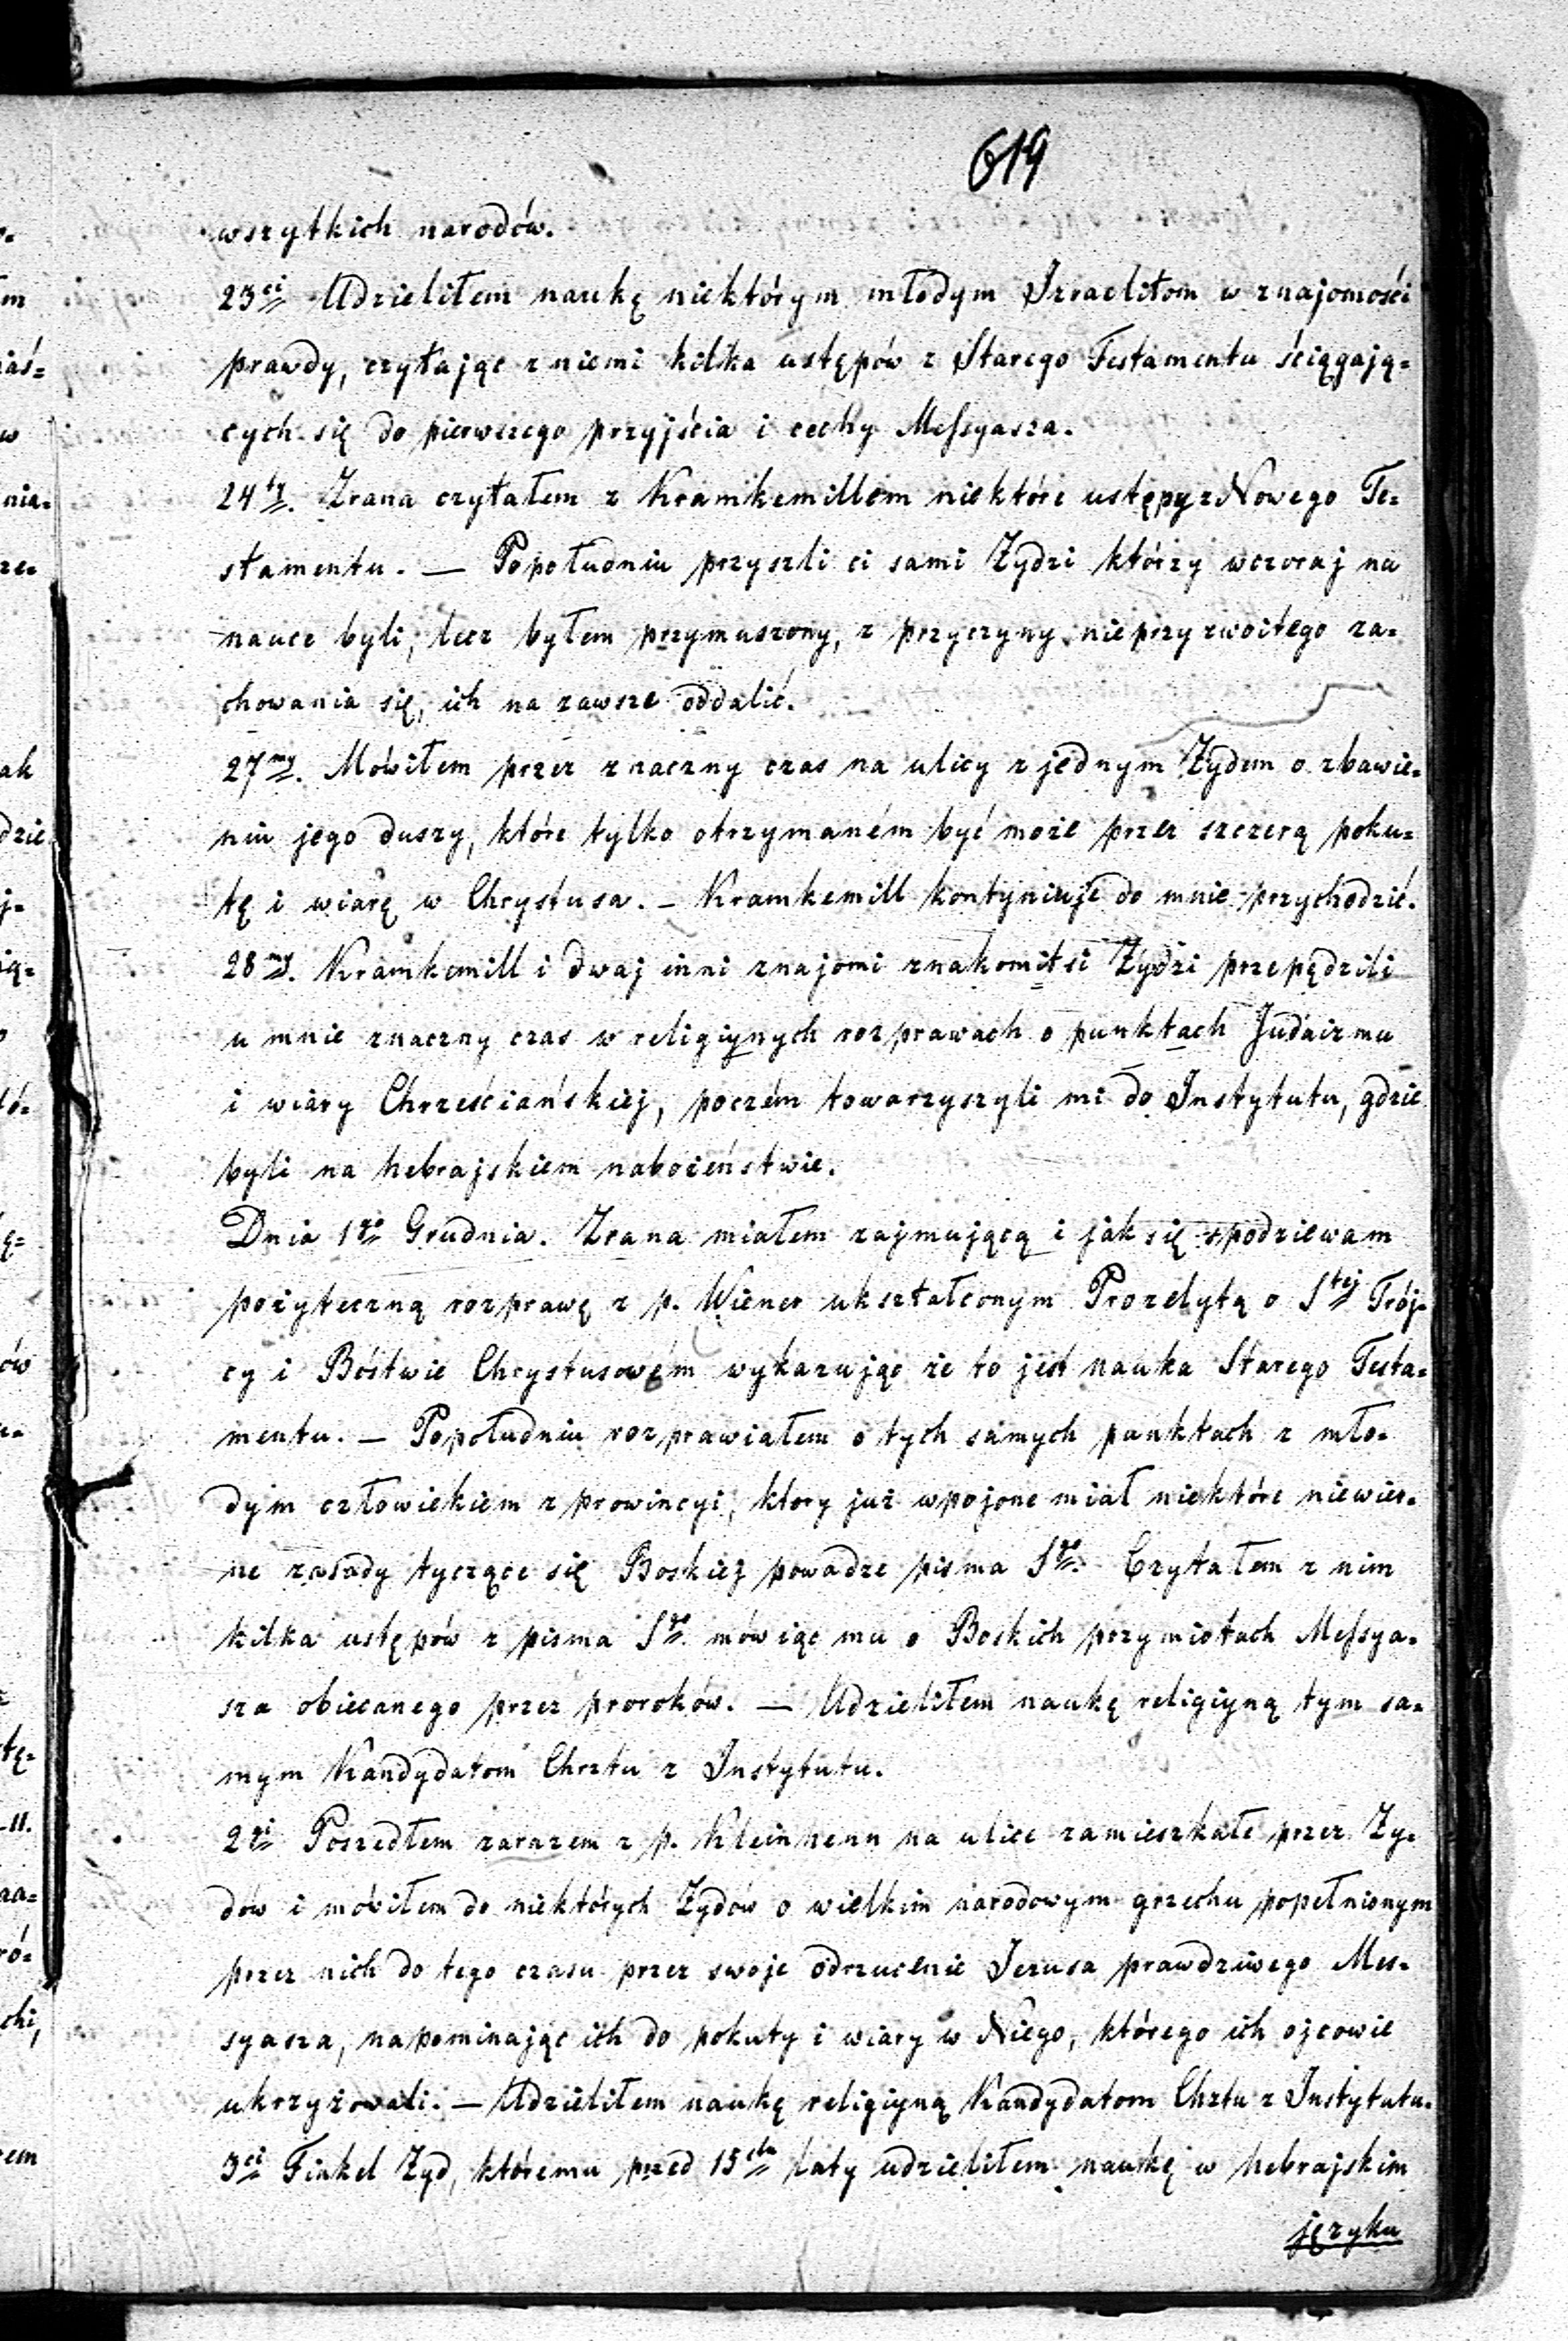 619
wszytkich narodów.
23ci Udzieliłem naukę niektórym młodym Izraelitom w znajomości
prawdy, czytając z niemi kilka ustępów z Starego Testamentu ściągają-
cych się do pierwszego przyjścia i cechy Messyasza.
24ty. Zrana czytałem z Kramkemillem niektóre ustępy z Nowego Te-
stamentu. — Popołudniu przyszli ci sami Żydzi którzy wczoraj na
nauce byli, lecz byłem przymuszony, z przyczyny nieprzyzwoitego za-
chowania się, ich na zawsze oddalić.
27my. Mówiłem przez znaczny czas na ulicy z jednym Żydem o zbawie-
niu jego duszy, które tylko otrzymaném być może przez szczerą poku-
tę i wiarę w Chrystusa. – Kramkemill kontyniuje do mnie przychodzić.
28my. Kramkemill i dwaj inni znajomi znakomitsi Żydzi przepędzili
u mnie znaczny czas w religiynych rozprawach o punktach Judaizmu
i wiary Chrześciańskiej, poczém towarzyszyli mi do Instytutu, gdzie
byli na hebrajskiem nabożeństwie.
Dnia 1go Grudnia. Zrana miałem zajmującą i jak się spodziewam
pożyteczną rozprawę z p. Wiener ukształconym Prozelytą o Stej Trój-
cy i Bóstwie Chrystusowém wykazując że to jest nauka Starego Testa-
mentu. — Popołudniu rozprawiałem o tych samych punktach z mło-
dym człowiekiem z prowincyi, ktory już wpojone miał niektóre niewier-
ne zasady tyczące się Boskiej powadze pisma Sgo. Czytałem z nim
kilka ustępów z pisma Sgo. mówiąc mu o Boskich przymiotach Messya-
sza obiecanego przez proroków. — Udzieliłem naukę religiyną tym sa-
mym Kandydatom Chrztu z Instytutu.
2gi Poszedłem zarazem z p. Kleinhenn na ulice zamieszkałe przez Ży-
dów i mówiłem do niektórych Żydów o wielkim narodowym grzechu popełnionym
przez nich do tego czasu przez swoje odrzucenie Jezusa prawdziwego Mes-
syasza, napominając ich do pokuty i wiary w Niego, którego ich ojcowie
ukrzyżowali. — Udzieliłem naukę religiyną Kandydatom Chztu z Instytutu.
3ci Finkel Żyd, któremu przed 15stu laty udzieliłem naukę w hebrajskim
języku